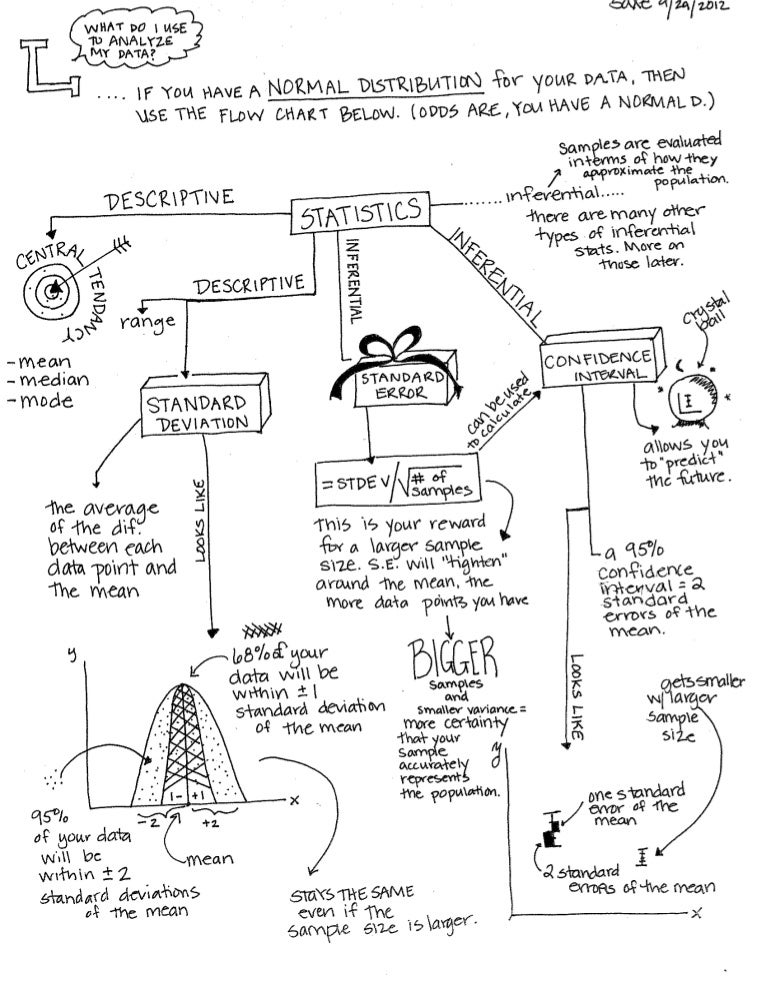 Date 9/29/2012
WHAT DO I USE
TO ANALYZE
MY DATA?
.... IF YOU HAVE A NORMAL DISTRIBUTION for YOUR DATA, THEN
USE THE FLOW CHART BELOW. (ODDS ARE, YOU HAVE A NORMAL D.)
Samples are evaluated
in terms of how they
approximate the
population.
inferential.....
there are many other
types of inferential
stats. More on
those later.
STATISTICS
DESCRIPTIVE
CENTRAL
TENDANCY
-mean
-median
-mode
DESCRIPTIVE
range
INFERENTIAL
INFERENTIAL
STANDARD
DEVIATION
STANDARD
ERROR
CONFIDENCE
INTERVAL
crystal
ball
allows you
to "predict"
the future.
can be used
to calculate
= STDEV/√# of
samples
the average
of the dif.
between each
data point and
the mean
LOOKS LIKE
This is your reward
for a larger sample
size. S.E. will "tighten"
around the mean, the
more data points you have
BIGGER
samples
and
smaller variance =
more certainty
that your
sample
accurately
represents
the population.
a 95%
confidence
interval = 2
standard
errors of the
mean.
LOOKS LIKE
gets smaller
w/ larger
sample
size
68% of your
data will be
within ±1
standard deviation
of the mean
y
x
1-
+1
-2
+2
mean
95%
of your data
will be
within ±2
standard deviations
of the mean
STAYS THE SAME
even if the
sample size is larger.
y
one standard
error of the
mean
2 standard
errors of the mean
x